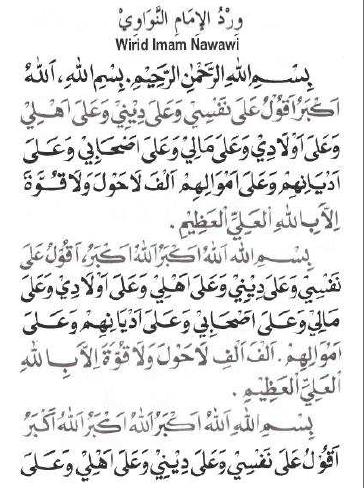 وِرْدُ الإِمَامِ النَّوَاوِيْ
Wirid Imam Nawawi
بِسْمِ اللهِ الرَّحْمٰنِ الرَّحِيْمِ. بِسْمِ اللهِ، اَللهُ
اَكْبَرُ اَقُوْلُ عَلَى نَفْسِيْ وَعَلَى دِيْنِيْ وَعَلَى اَهْلِيْ
وَعَلَى اَوْلَادِيْ وَعَلَى مَالِيْ وَعَلَى اَصْحَابِيْ وَعَلَى
اَدْيَانِهِمْ وَعَلَى اَمْوَالِهِمْ اَلْفَ لَاحَوْلَ وَلَا قُوَّةَ
اِلَّا بِاللهِ الْعَلِيِّ الْعَظِيْمِ.
بِسْمِ اللهِ اَللهُ اَكْبَرُ اَللهُ اَكْبَرُ، اَقُوْلُ عَلَى
نَفْسِيْ وَعَلَى دِيْنِيْ وَعَلَى اَهْلِيْ وَعَلَى اَوْلَادِيْ وَعَلَى
مَالِيْ وَعَلَى اَصْحَابِيْ وَعَلَى اَدْيَانِهِمْ وَعَلَى
اَمْوَالِهِمْ. اَلْفَ اَلْفِ لَاحَوْلَ وَلَا قُوَّةَ اِلَّا بِاللهِ
الْعَلِيِّ الْعَظِيْمِ.
بِسْمِ اللهِ اَللهُ اَكْبَرُ اَللهُ اَكْبَرُ اَللهُ اَكْبَرُ
اَقُوْلُ عَلَى نَفْسِيْ وَعَلَى دِيْنِيْ وَعَلَى اَهْلِيْ وَعَلَى